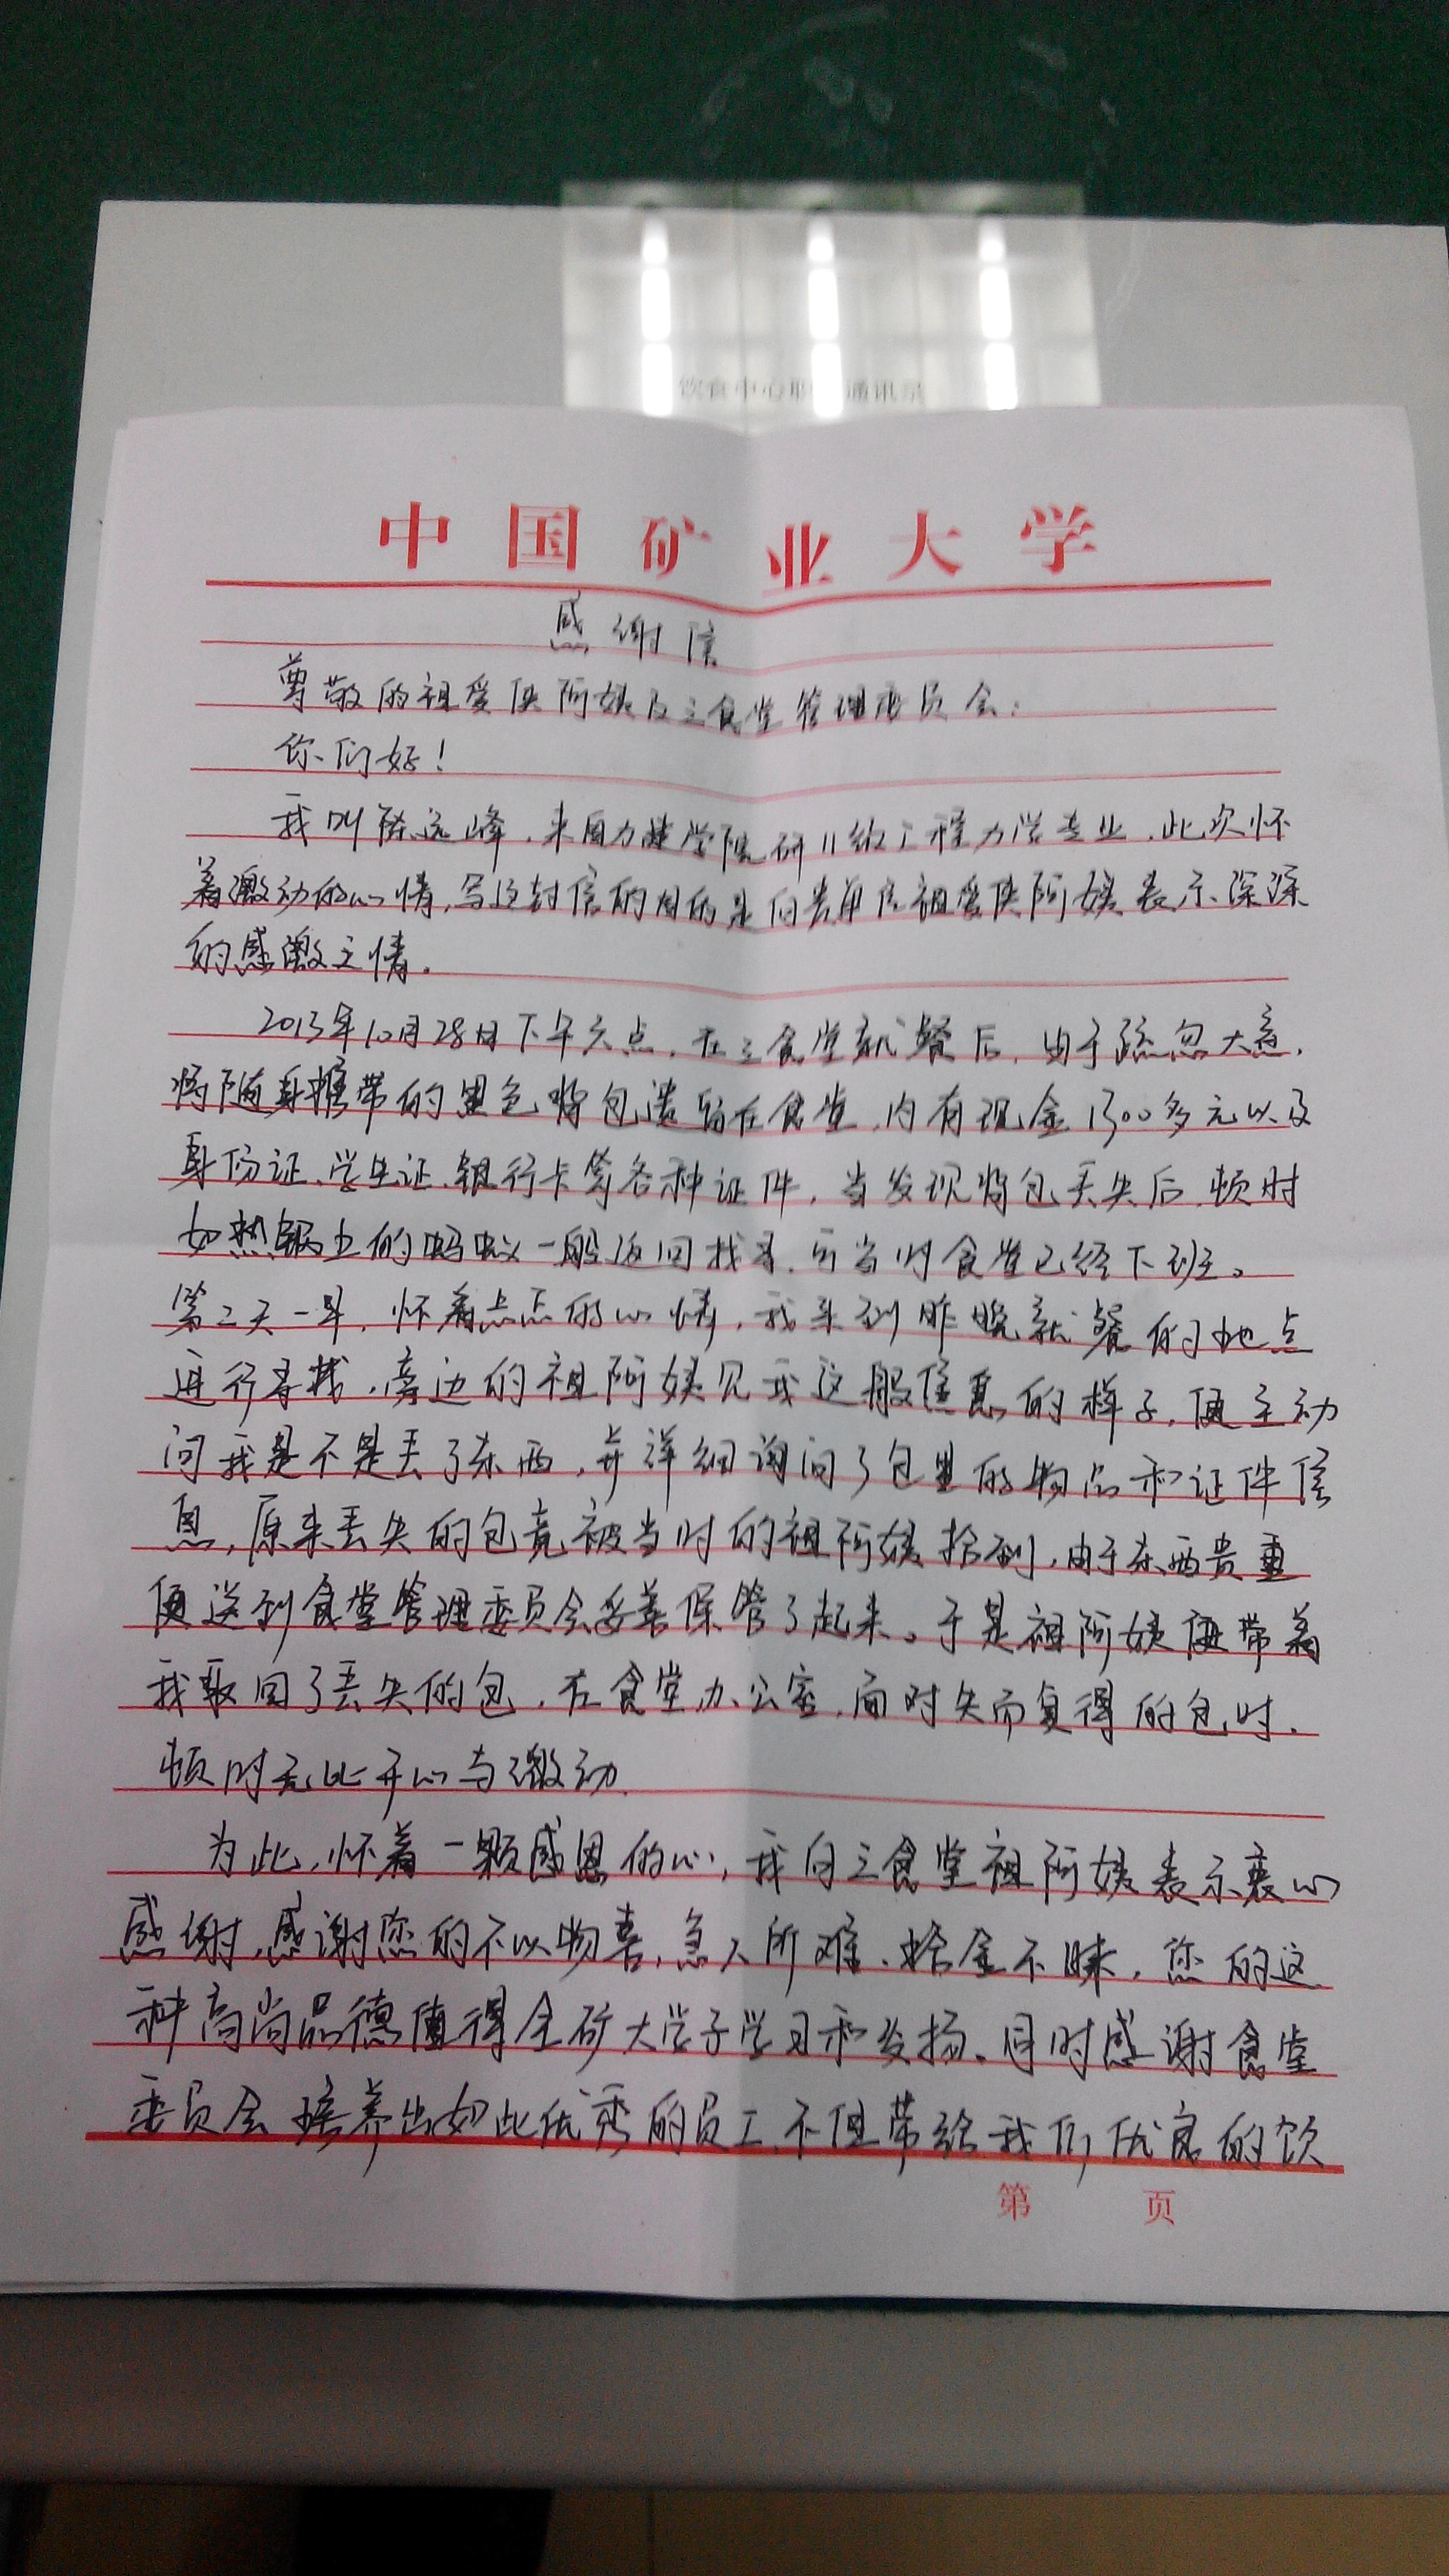 饮食中心职 通讯录
中国矿业大学
感谢信
尊敬的祖爱侠阿姨及三食堂管理委员会：
你们好！
我叫陈远峰，来自力建学院研11级工程力学专业，此次怀
着激动的心情，写这封信的目的是向贵单位祖爱侠阿姨表示深深
的感激之情。
2013年10月28日下午六点，在三食堂就餐后，由于疏忽大意，
将随身携带的黑色挎包遗留在食堂，内有现金1300多元以及
身份证、学生证、银行卡等各种证件，当发现挎包丢失后，顿时
如热锅上的蚂蚁一般返回找寻，可当时食堂已经下班。
第二天一早，怀着忐忑的心情，我来到昨晚就餐的地点
进行寻找，旁边的祖阿姨见我这般焦急的样子，便主动
问我是不是丢了东西，并详细询问了包里的物品和证件信
息，原来丢失的包竟被当时的祖阿姨拾到，由于东西贵重
便送到食堂管理委员会妥善保管了起来。于是祖阿姨便带着
我取回了丢失的包，在食堂办公室，面对失而复得的包时，
顿时无比开心与激动。
为此，怀着一颗感恩的心，我向三食堂祖阿姨表示衷心
感谢，感谢您的不以物喜，急人所难、拾金不昧，您的这
种高尚品德值得全矿大学子学习和发扬。同时感谢食堂
委员会培养出如此优秀的员工，不但带给我们优良的饮
第 页